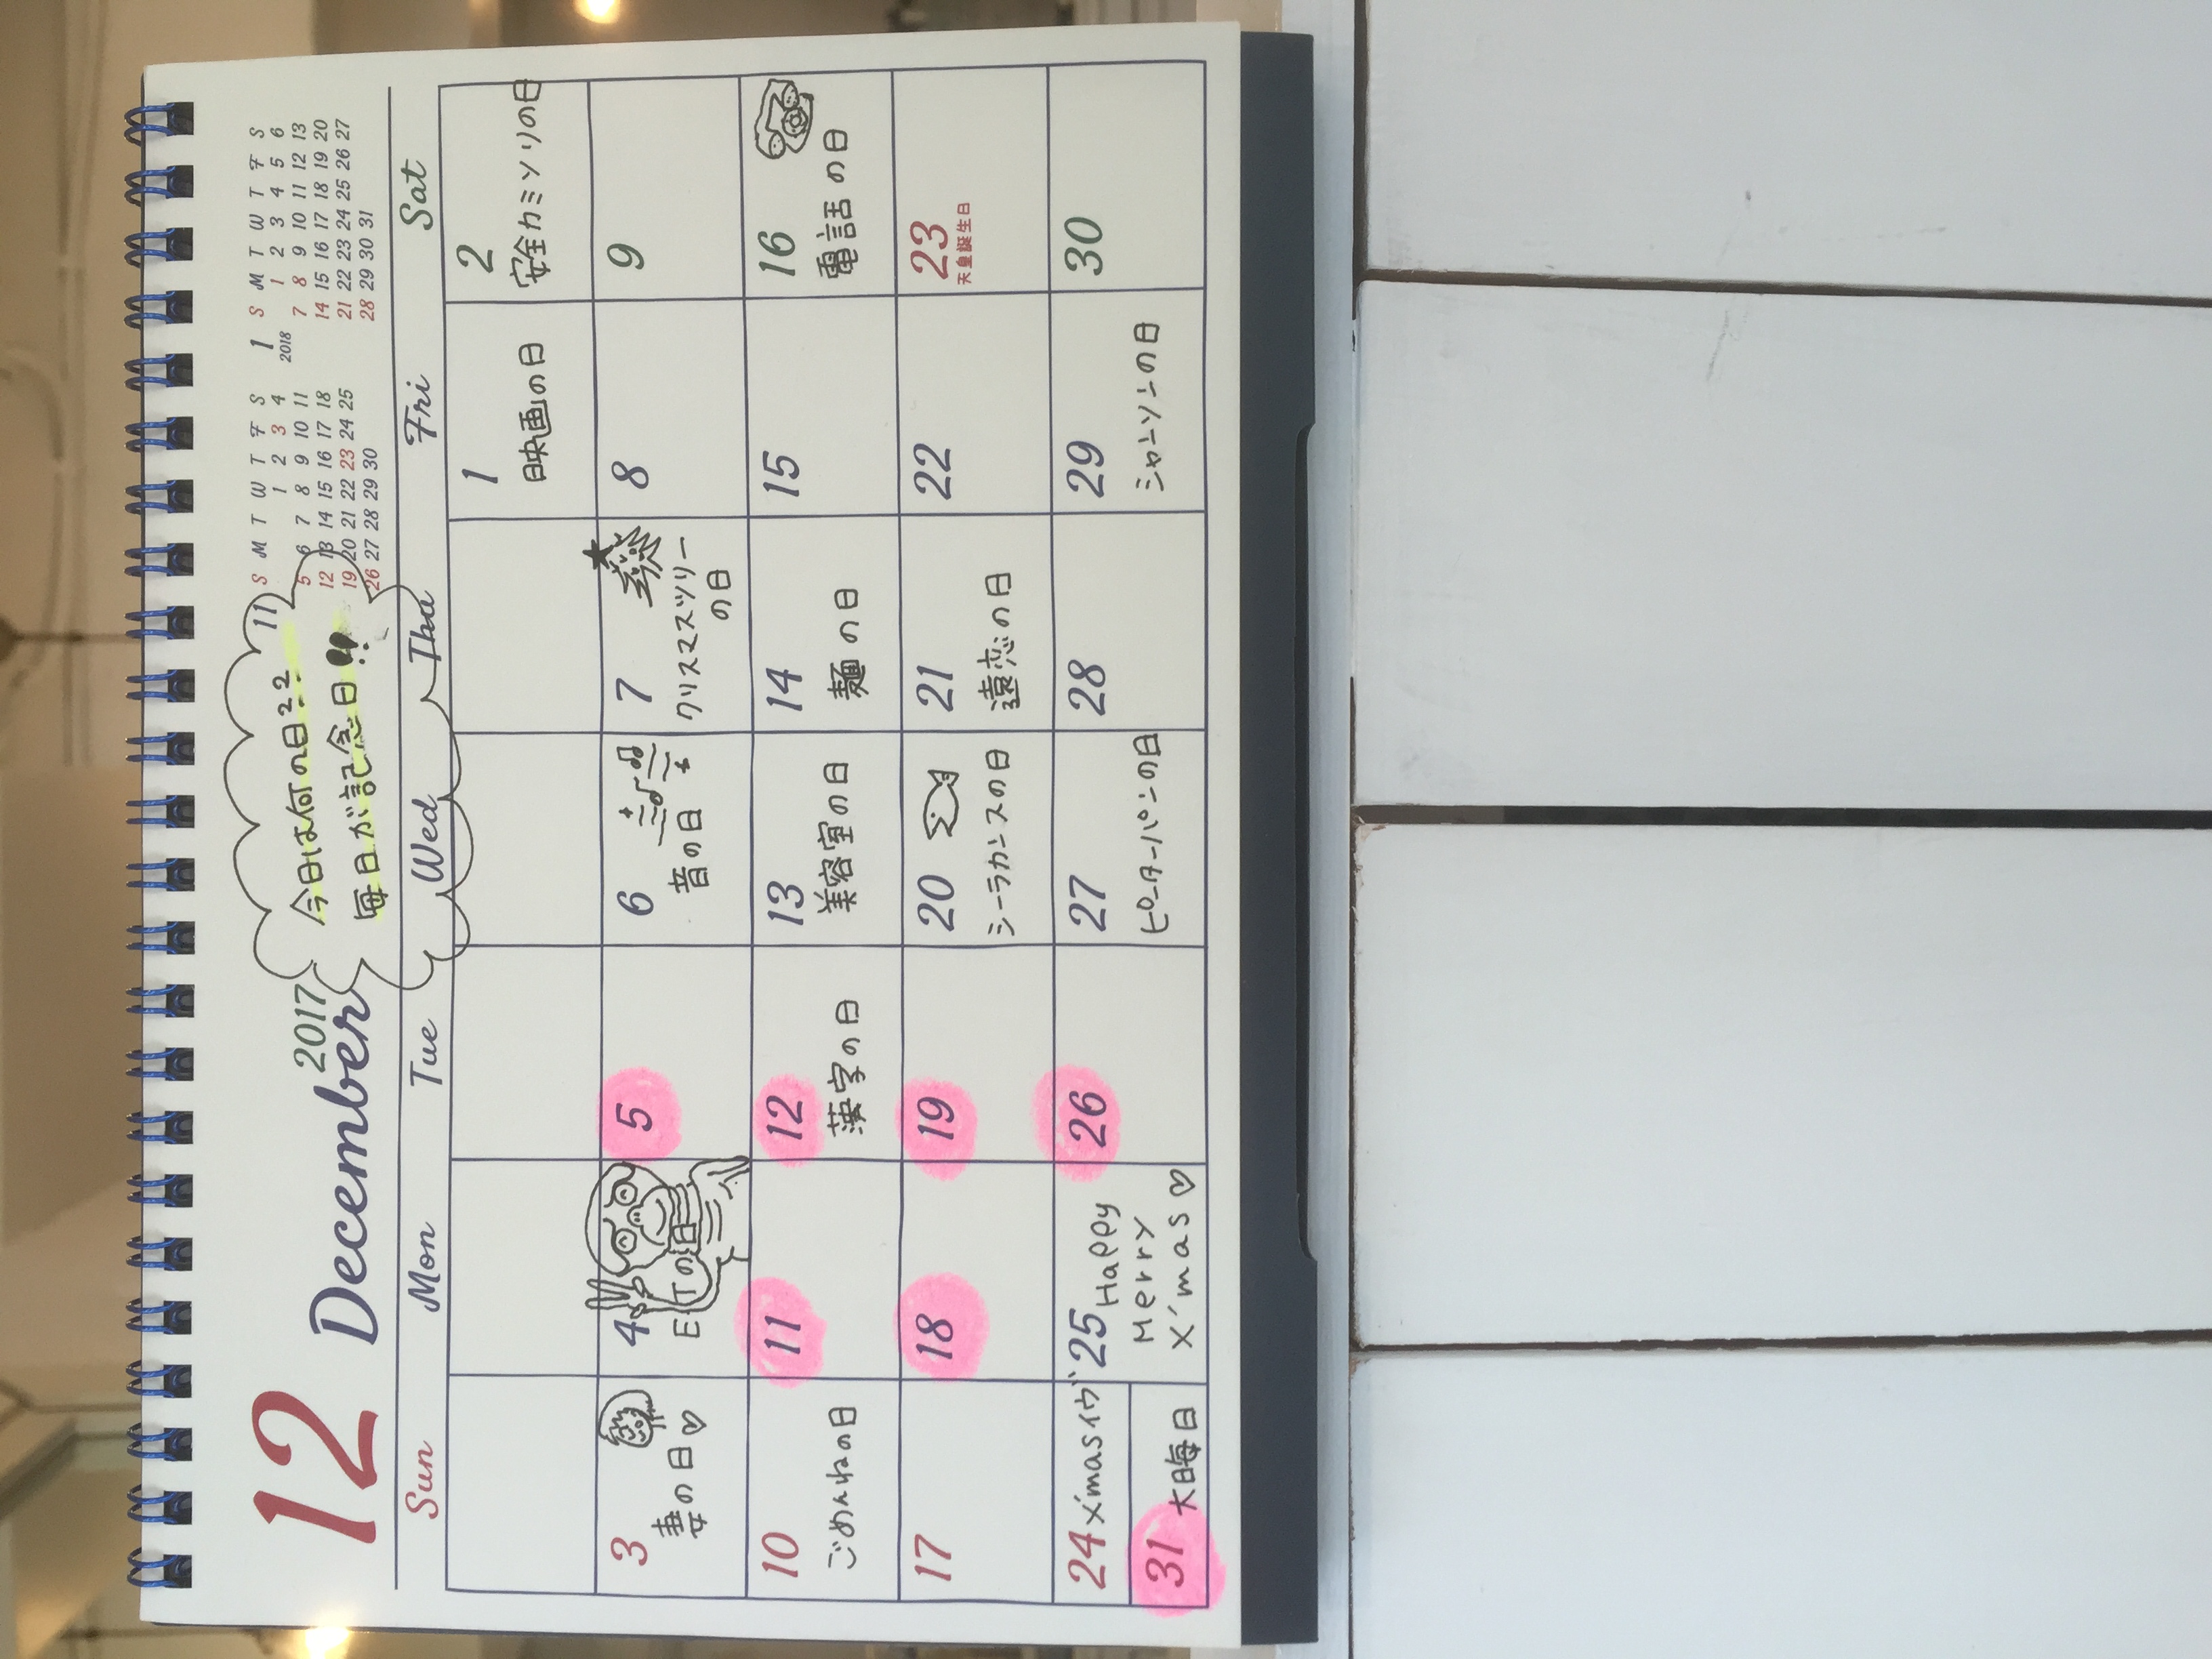 12 December 2017
今日は何の日??
毎日が記念日!!
11
S M T W T F S
1 2 3 4
5 6 7 8 9 10 11
12 13 14 15 16 17 18
19 20 21 22 23 24 25
26 27 28 29 30
1
2018
S M T W T F S
1 2 3 4 5 6
7 8 9 10 11 12 13
14 15 16 17 18 19 20
21 22 23 24 25 26 27
28 29 30 31
Sun Mon Tue Wed Thu Fri Sat
1
映画の日
2
安全カミソリの日
3
妻の日♡
4
ETの日
5
6
音の日
7
クリスマスツリー
の日
8
9
10
ごめんねの日
11
12
漢字の日
13
美容室の日
14
麺の日
15
16
電話の日
17
18
19
20
シーラカンスの日
21
遠恋の日
22
23
天皇誕生日
24 X'masイヴ
25 Happy
Merry
X'mas♡
26
27
ピーターパンの日
28
29
シャンソンの日
30
31 大晦日